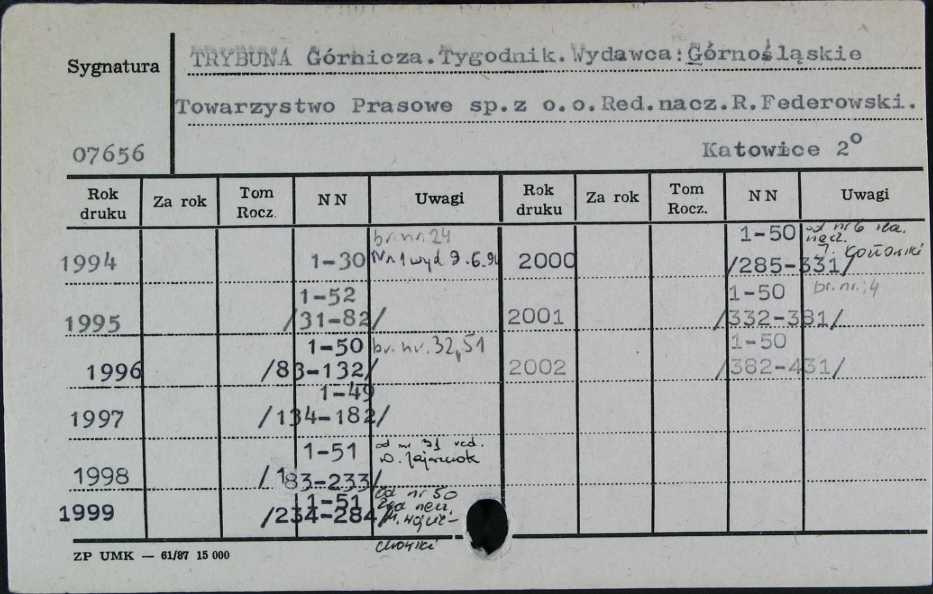 Sygnatura
TRYBUNA Górnicza.Tygodnik.Wydawca:Górnośląskie
Towarzystwo Prasowe sp.z o.o.Red.nacz.R.Federowski.
07656
Katowice 2°
Rok druku Za rok Tom Rocz. NN Uwagi Rok druku Za rok Tom Rocz. NN Uwagi
1994 1-30 br.nr.24 Nr 1 wyd 9.6.94
1995 1-52 /31-82/
1996 1-50 /83-132/ br.nr.32,51
1997 1-49 /134-182/
1998 1-51 /183-233/ od nr 31 red.
1999 1-51 /234-284/ od nr 50
2000 1-50 /285-331/ od nr 6
2001 1-50 /332-381/ br.nr.:4
2002 1-50 /382-431/
ZP UMK — 61/87 15 000